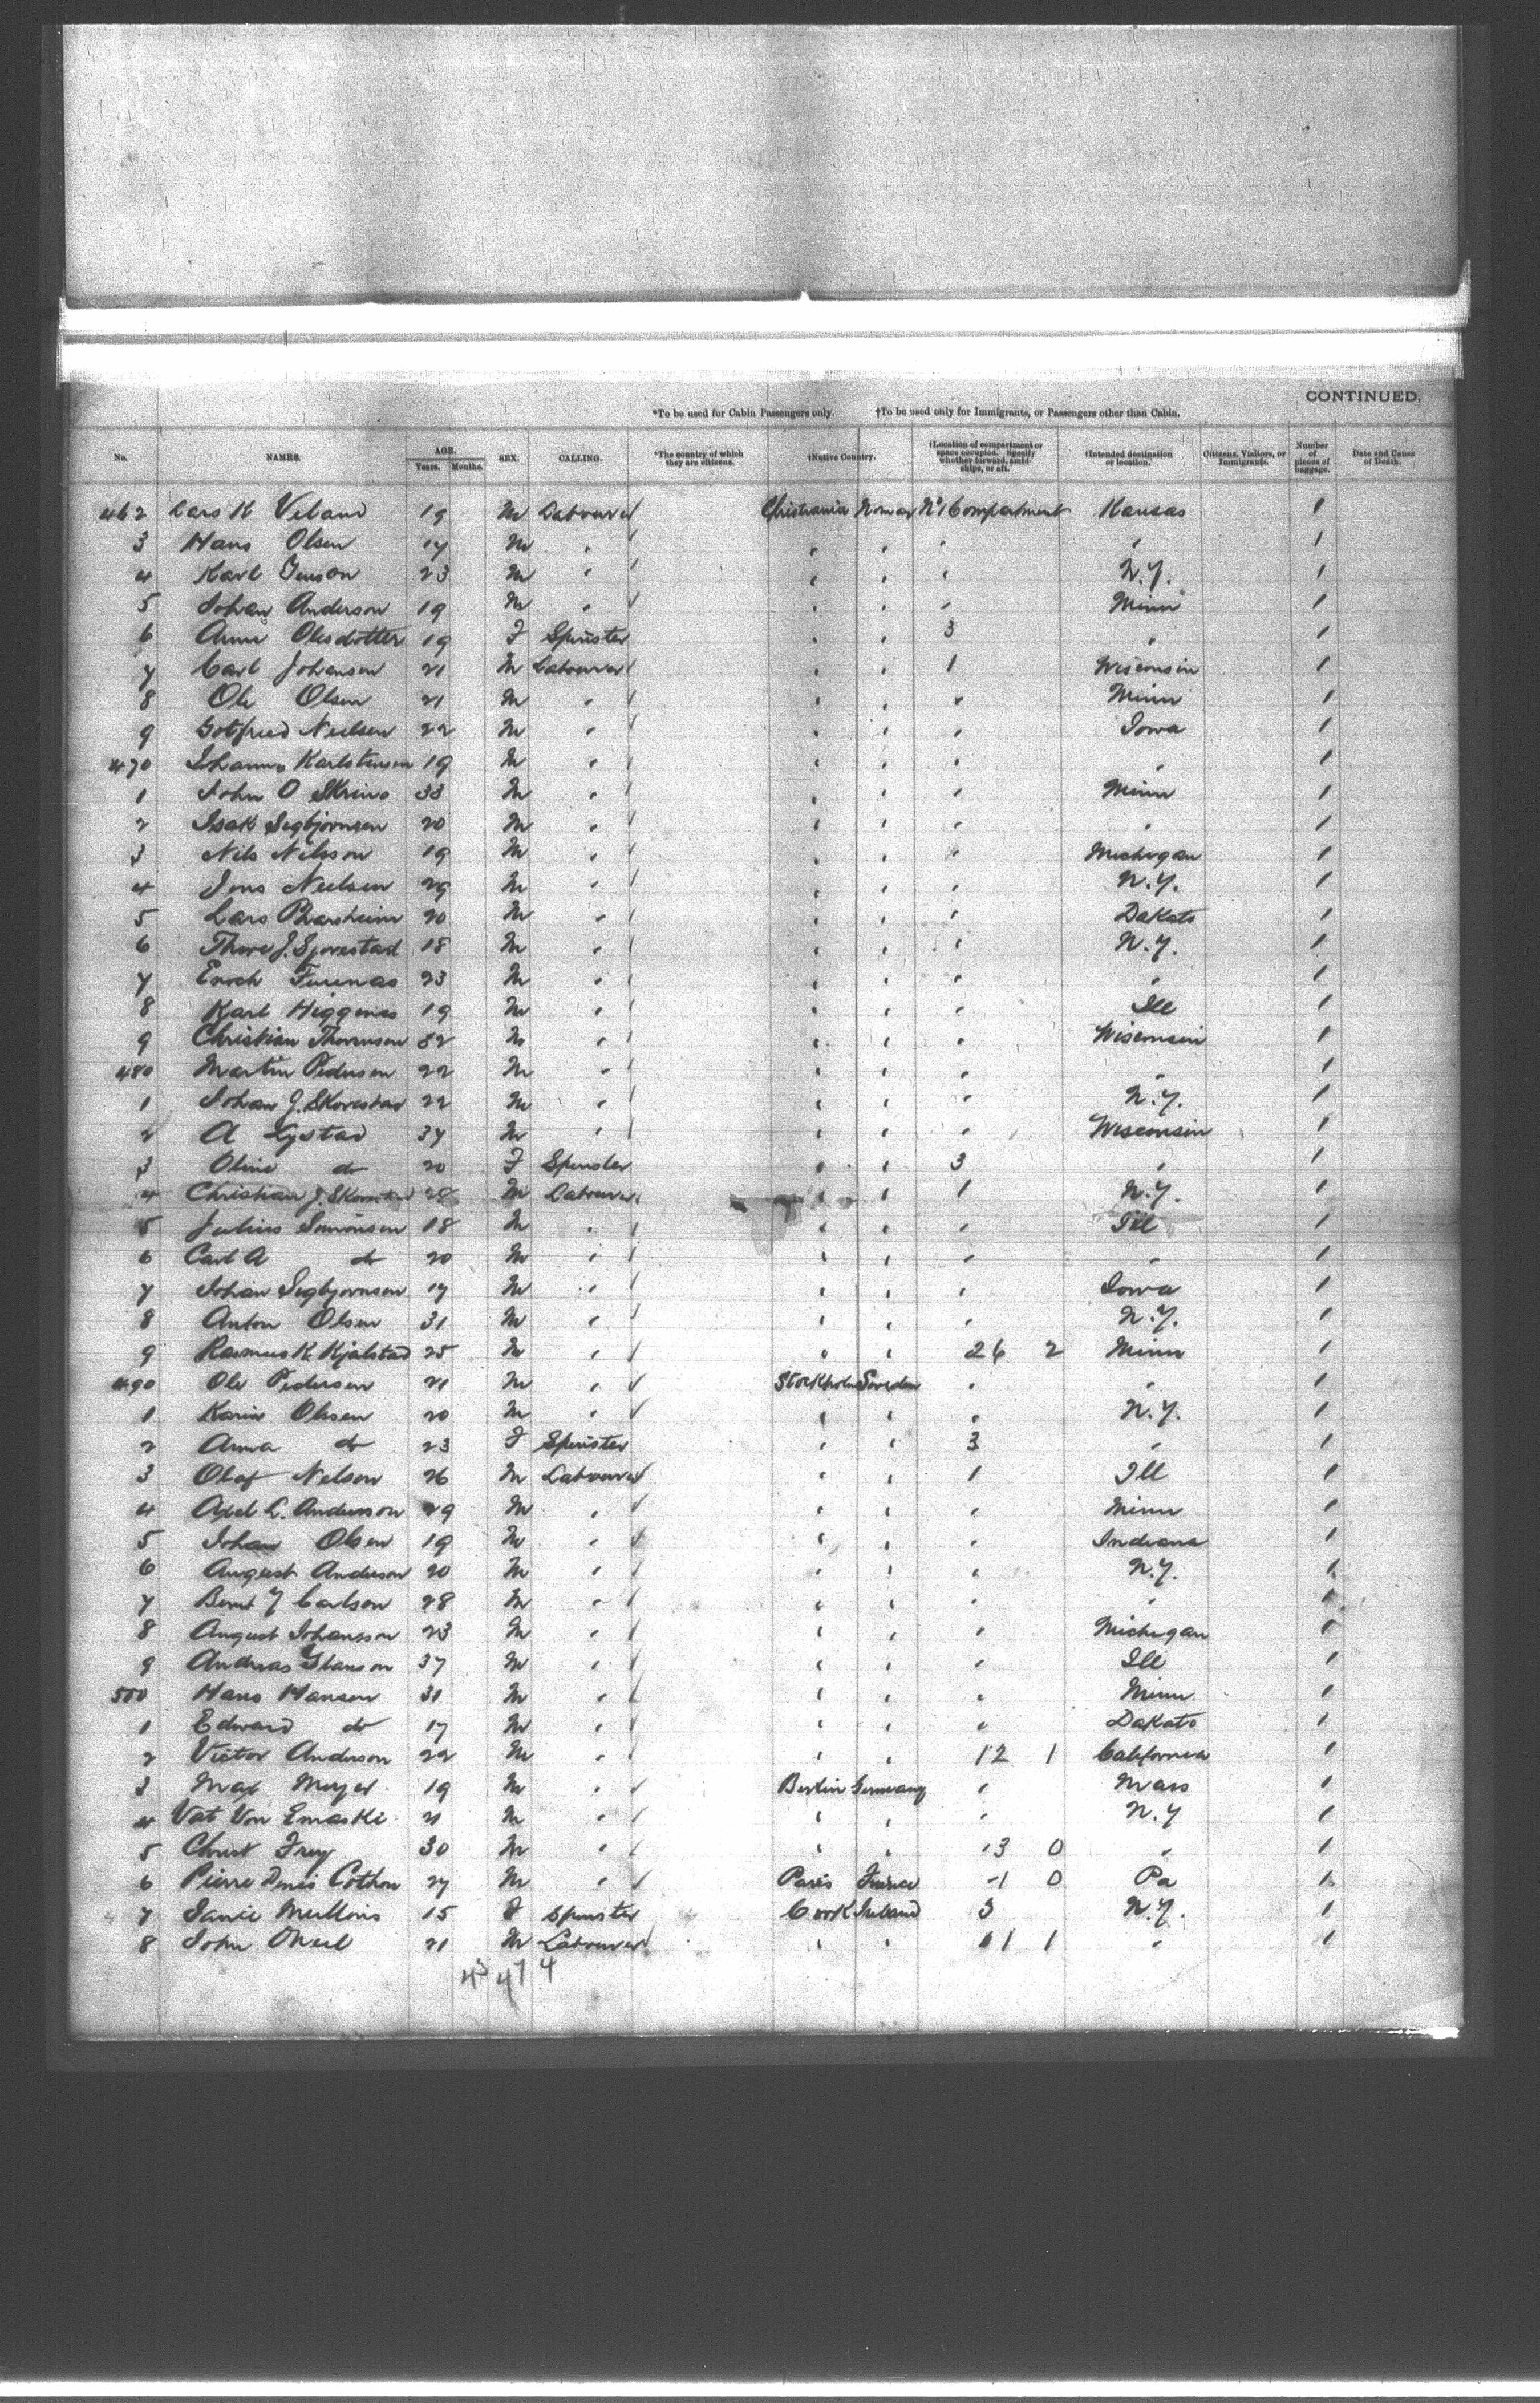 CONTINUED.
*To be used for Cabin Passengers only. †To be used only for Immigrants, or Passengers other than Cabin.
No. NAMES. AGE. Years. Months. SEX. CALLING. *The country of which they are citizens. †Native Country. †Location of compartment or space occupied. (Specify whether forward, amidships, or aft. †Intended destination or location. Citizens, Visitors, or Immigrants. Number of pieces of baggage. Date and Cause of Death.
462 Lars K Veland 19 M Labourer Christiania Norway No 1 Compartment Kansas 1
3 Hans Olsen 17 M " " " " " 1
4 Karl Jenson 23 M " " " " N.Y. 1
5 Johan Anderson 19 M " " " " Minn 1
6 Anna Olesdotter 19 F Spinster " " 3 " 1
7 Carl Johansen 21 M Labourer " " 1 Wisconsin 1
8 Ole Olsen 21 M " " " " Minn 1
9 Gotfried Neilsen 22 M " " " " Iowa 1
470 Johannes Karlstensen 19 M " " " " " 1
1 John O 33 M " " " " Minn 1
2 Isak Segbjornsen 20 M " " " " " 1
3 Nils Nilsson 19 M " " " " Michigan 1
4 Jens Neilsen 29 M " " " " N.Y. 1
5 Lars 20 M " " " " Dakota 1
6 Thore J. 18 M " " " " N.Y. 1
7 Enoch 23 M " " " " " 1
8 Karl Higgines 19 M " " " " Ill 1
9 Christian Thorensen 32 M " " " " Wisconsin 1
480 Martin Pedersen 22 M " " " " " 1
1 Johan J. Skorestad 22 M " " " " N.Y. 1
2 A Lystad 34 M " " " " Wisconsin 1
3 Oline do 20 F Spinster " " 3 " 1
4 Christian J. 28 M Labourer " " 1 N.Y. 1
5 Julius Simonsen 18 M " " " " Ill 1
6 Carl A do 20 M " " " " " 1
7 Johan Segbjornsen 17 M " " " " Iowa 1
8 Anton Olsen 31 M " " " " N.Y. 1
9 Rasmus K. Kjalstad 25 M " " " 26 2 Minn 1
490 Ole Pedersen 21 M " Stockholm Sweden " " 1
1 Karin Olsen 20 M " " " " N.Y. 1
2 Anna do 23 F Spinster " " 3 " 1
3 Olaf Nelson 26 M Labourer " " 1 Ill 1
4 Axel L. Anderson 29 M " " " " Minn 1
5 Johan Olsen 19 M " " " " Indiana 1
6 August Anderson 20 M " " " " N.Y. 1
7 Bernt Y Carlson 28 M " " " " " 1
8 August Johansson 23 M " " " " Michigan 1
9 Andreas 37 M " " " " Ill 1
500 Hans Hansen 31 M " " " " Minn 1
1 Edward do 17 M " " " " Dakota 1
2 Victor Anderson 22 M " " " 12 1 California 1
3 Max Meyer 19 M " Berlin Germany " Mass 1
4 Vat Von Emaski 21 M " " " " N.Y 1
5 Christ Frey 30 M " " " 3 0 " 1
6 Pierre Denis Cothon 27 M " Paris France 1 0 Pa 1
7 Janie Mullins 15 F Spinster Cork Ireland 3 N.Y. 1
8 John ONeil 21 M Labourer " " 11 1 " 1
43 47 4